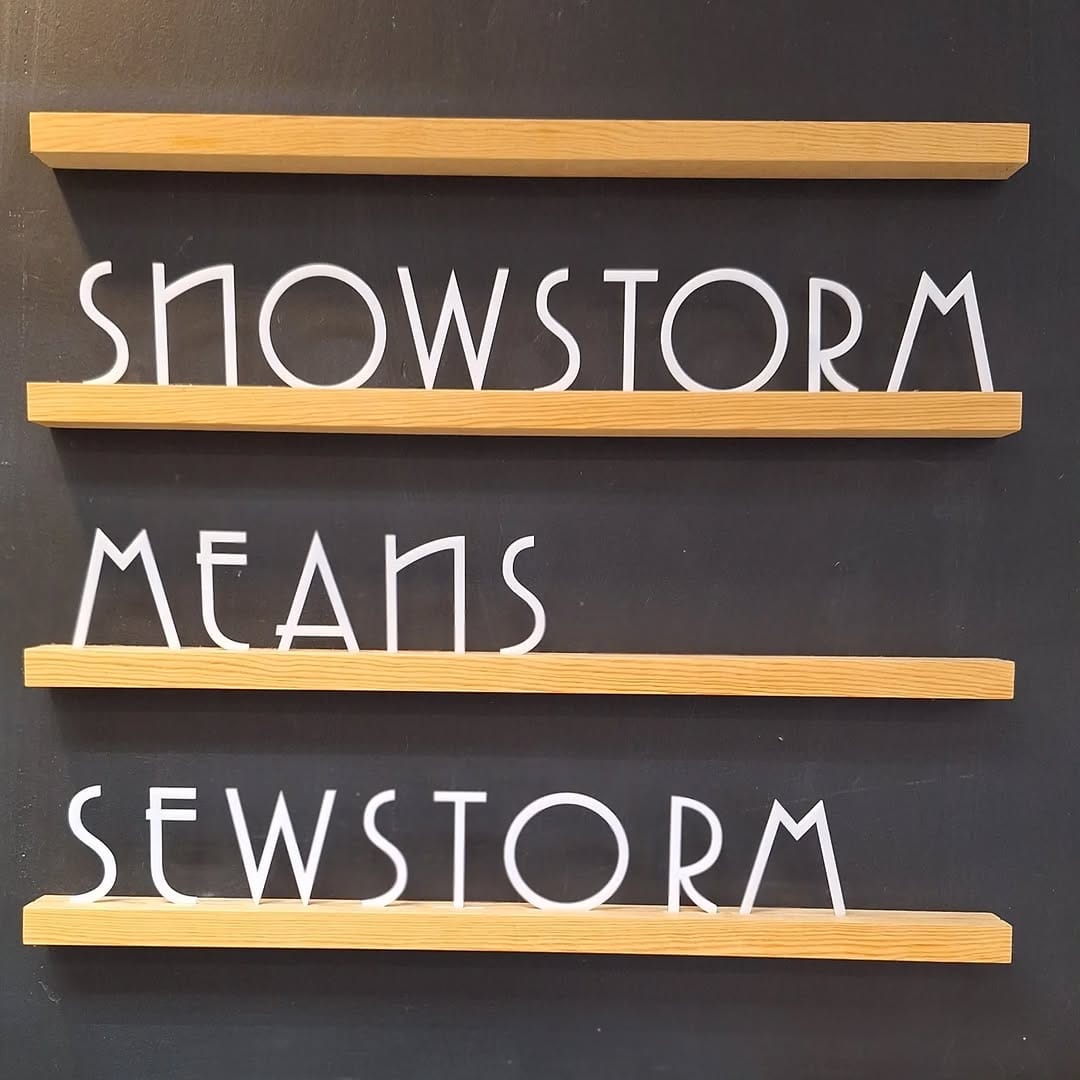 SNOWSTORM
MEANS
SEWSTORM